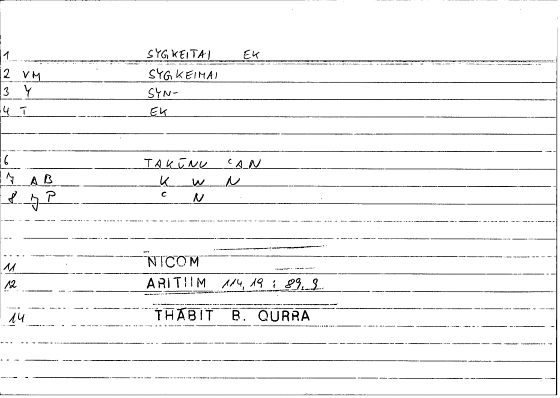 1 SYGKEITAI EK
2 VM SYGKEIMAI
3 Y SYN-
4 T EK
6 TAKŪNU ʿAN
7 AB K W N
8 P ʿ N
11 NICOM
12 ARITIIM 114, 19 : 89, 9
14 THĀBIT B. QURRA